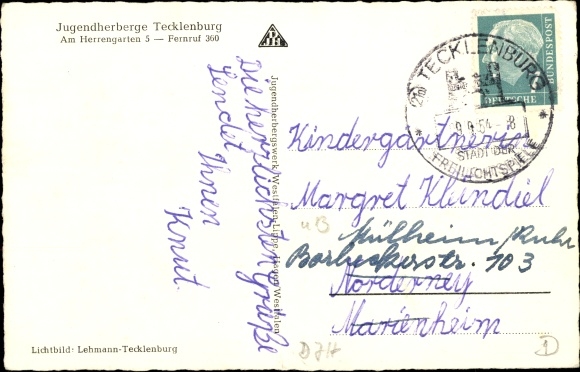 Jugendherberge Tecklenburg
Am Herrengarten 5 — Fernruf 360
DJH
Die herzlichsten Grüße
sendet Ihnen
Knut
Jugendherbergswerk Westfalen-Lippe, Hagen/Westfalen
DEUTSCHE BUNDESPOST
(21a) TECKLENBURG
9.9.54 - 8
STADT DER
FREILICHTSPIELE
Kindergärtnerin
Margret Klundiel
Mülheim/Ruhr
Borbeckerstr. 103
Norderney
Marienheim
Lichtbild: Lehmann-Tecklenburg
DJH
1